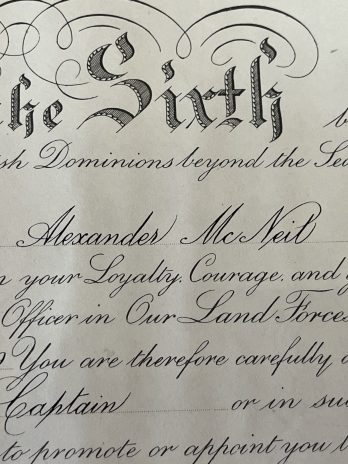 the Sixth b
ish Dominions beyond the Sea
Alexander McNeil
n your Loyalty, Courage, and g
Officer in Our Land Forces
You are therefore carefully a
Captain or in su
to promote or appoint you t